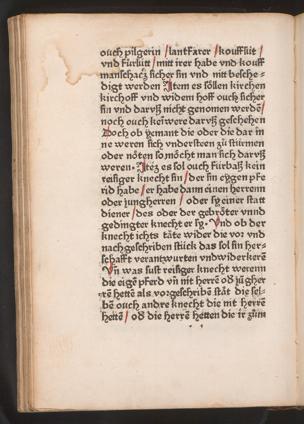 ouch pilgerin / lantfarer / kouflüt /
vnd fürlütt / mitt irer habe vnd kouff
manschacz sicher sin vnd nitt beschedigt
werden Item es söllen kirchen
kirchoff vnd widem hoff ouch sicher
sin vnd daruß nicht genomen werdē /
noch ouch keiwere daruß geschehen
Doch ob yemant die oder die dar in
ne weren sich vndersteen zů stürmen
oder nöten so möcht man sich daruß
weren · Itē es sol ouch fürbaß kein
reisiger knecht sin / der sin eygen pfe
rid habe / er habe dann einen herrenn
oder jungherren / oder sy einer statt
diener / des oder der gebröter vnnd
gedingter knecht er sy · Vnd ob der
knecht ichts täte wider die vor vnd
nachgeschriben stück das sol sin herschafft
verantwurten vnd widerkerē
Vn̄ was sust reisiger knecht werenn
die eigē pferd vn̄ nit herrē oð jūgher
rē hettē als vorgeschribē stāt die selben
ouch andre knecht die nit herrē
hettē / oð die herrē hetten die ir zům